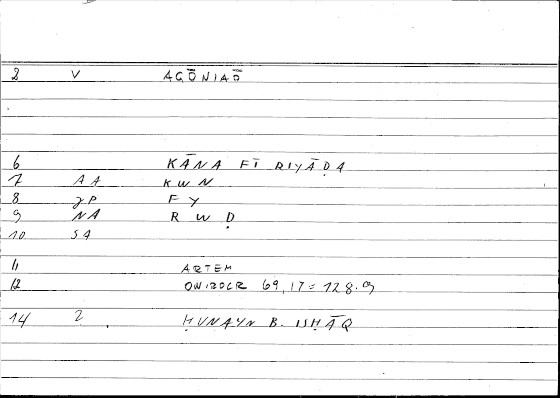 2 V AGŌNIAŌ
6 KĀNA FĪ RIYĀḌA
7 AA KWN
8 JP FY
9 NA RWḌ
10 SA
11 ARTEM
12 ONIROCR 69,17 = 128.9
14 2 ḤUNAYN B. ISḤĀQ